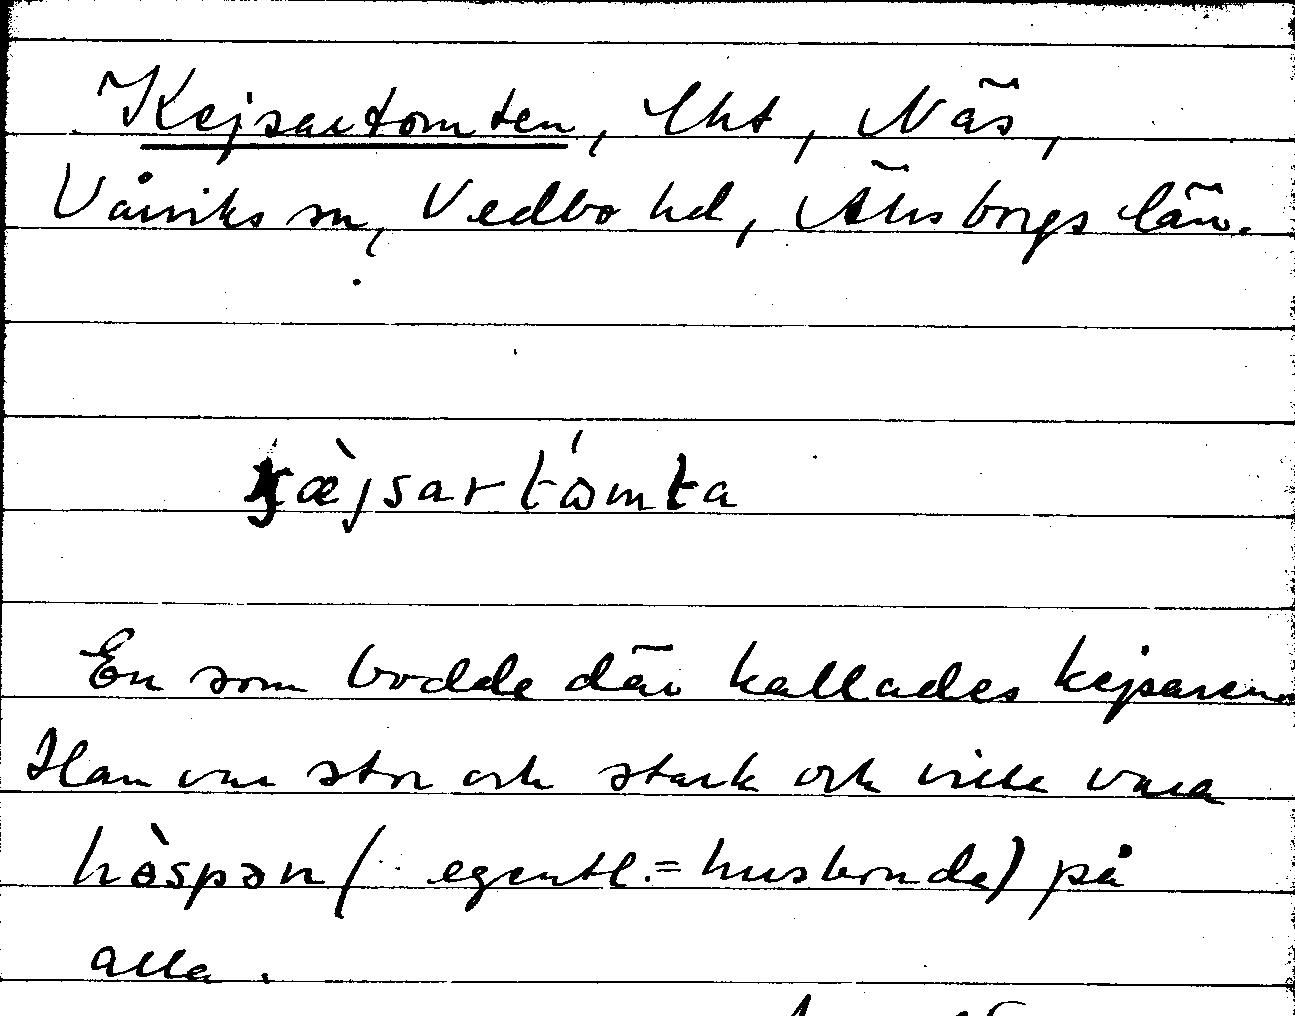 Kejsartomten, lht, Näs,
Vårviks sn, Vedbo hd, Älvsborgs län.
kæ̀jsartómta
En som bodde där kallades kejsaren.
Han var stor och stark och ville vara
hòspən (egentl. = husbonde) på
alla.